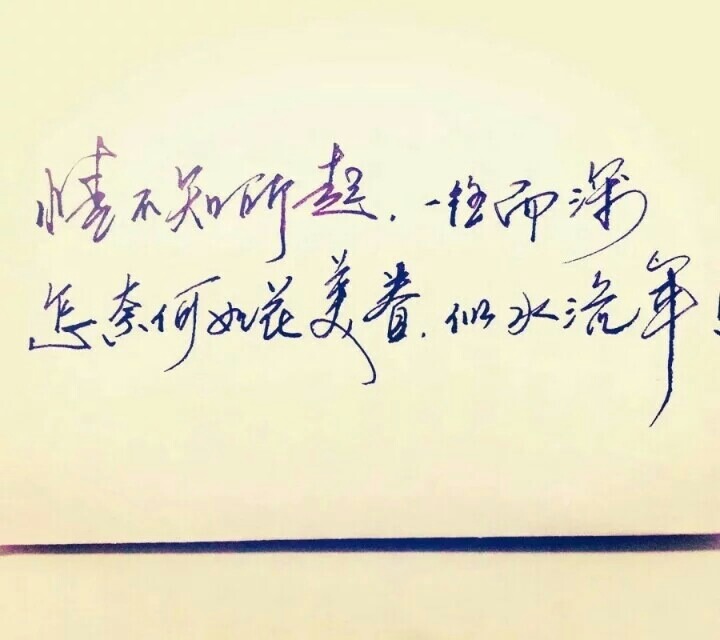 情不知所起,一往而深
怎奈何如花美眷,似水流年